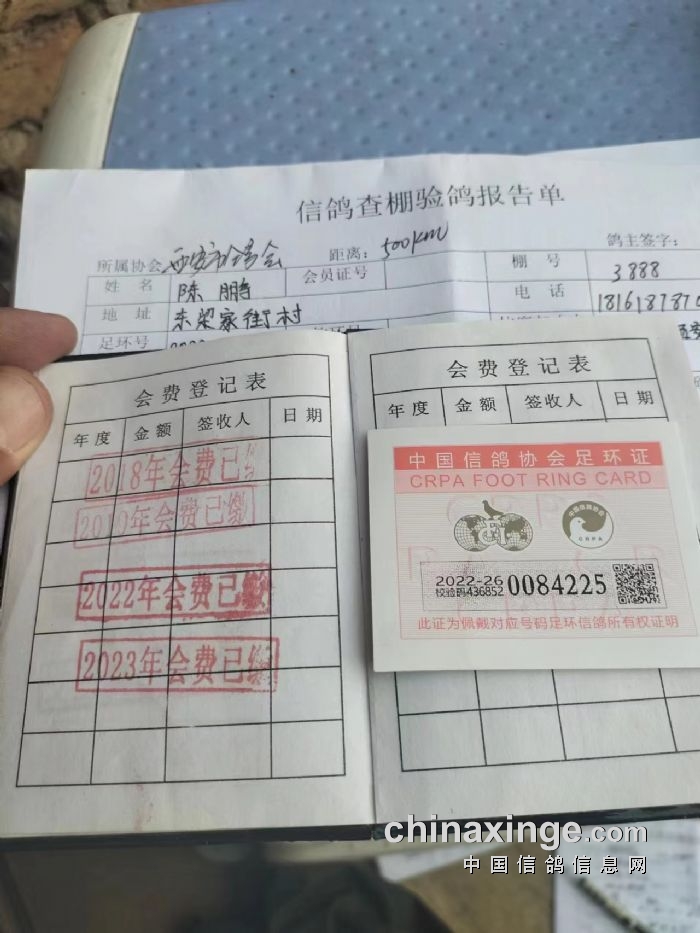 信鸽查棚验鸽报告单
所属协会 西安市信鸽会 距离: 500km 鸽主签字:
姓名 陈鹏 会员证号 棚号 3888
地址 未梁家街村 电话
足环号
会费登记表
年度 金额 签收人 日期
2018年会费已缴
2019年会费已缴
2022年会费已缴
2023年会费已缴
会费登记表
年度 金额 签收人 日期
中国信鸽协会足环证
CRPA FOOT RING CARD
中国信鸽协会
CRPA
2022-26
校验码436852 0084225
此证为佩戴对应号码足环信鸽所有权证明
chinaxinge.com
中国信鸽信息网